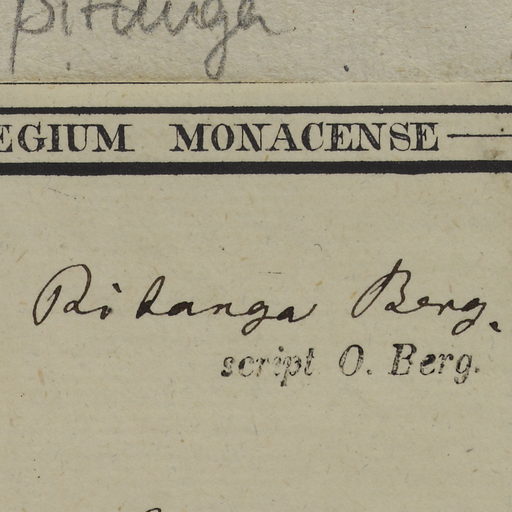 pitanga
EGIUM MONACENSE
Pitanga Berg.
script O. Berg.